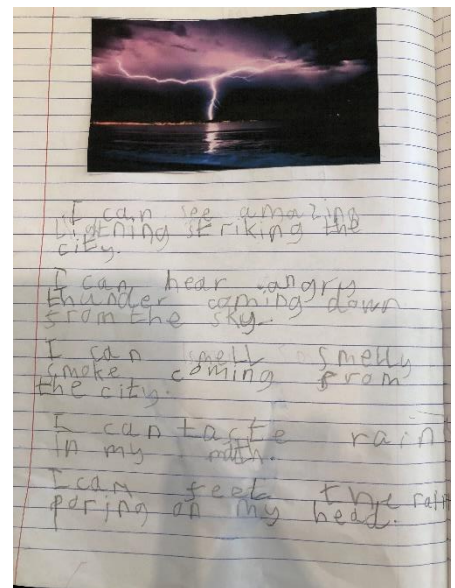 I can see amazing
lightning striking the
city.
I can hear angry
thunder coming down
from the sky.
I can smell smelly
smoke coming from
the city.
I can tacte rain
in my math.
I can feel the rain
poring on my head.